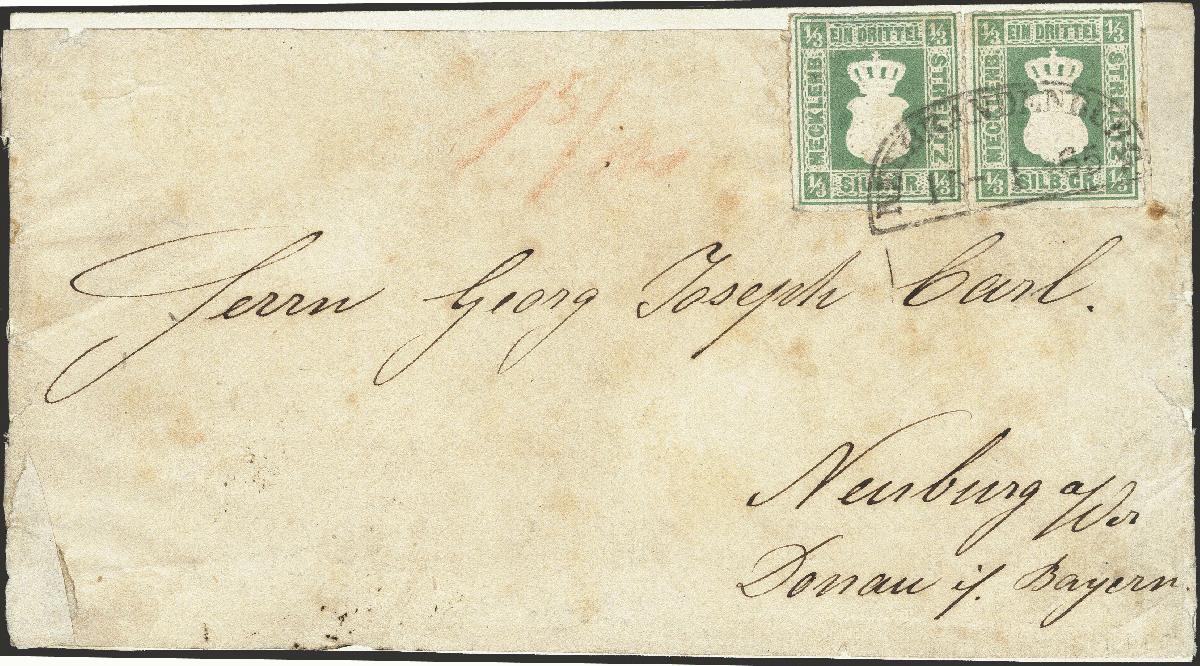 1/3 EIN DRITTEL 1/3
MECKLENB. STRELITZ
1/3 SILB. GR. 1/3
1/3 EIN DRITTEL 1/3
MECKLENB. STRELITZ
1/3 SILB. GR. 1/3
NEUBRANDENBURG
Herrn Georg Joseph Carl.
Neuburg a/d
Donau i/. Bayern.